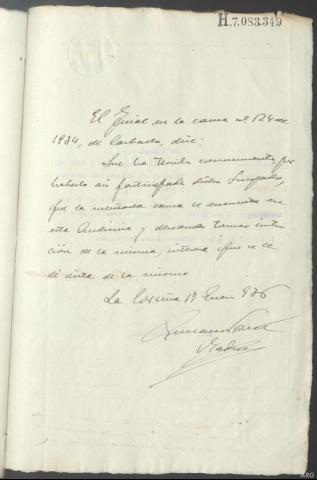 H.7.083.349
El Fiscal en la causa nº 124 de
1934, de Carballo, dice:
Que ha tenido conocimiento por
haberlo así participado dicho Juzgado,
que la mencionada causa se encuentra en
esta Audiencia y deseando tomar
de la misma, interesa que se le
dé vista de la misma
La Coruña 17 Enero 936
ARG